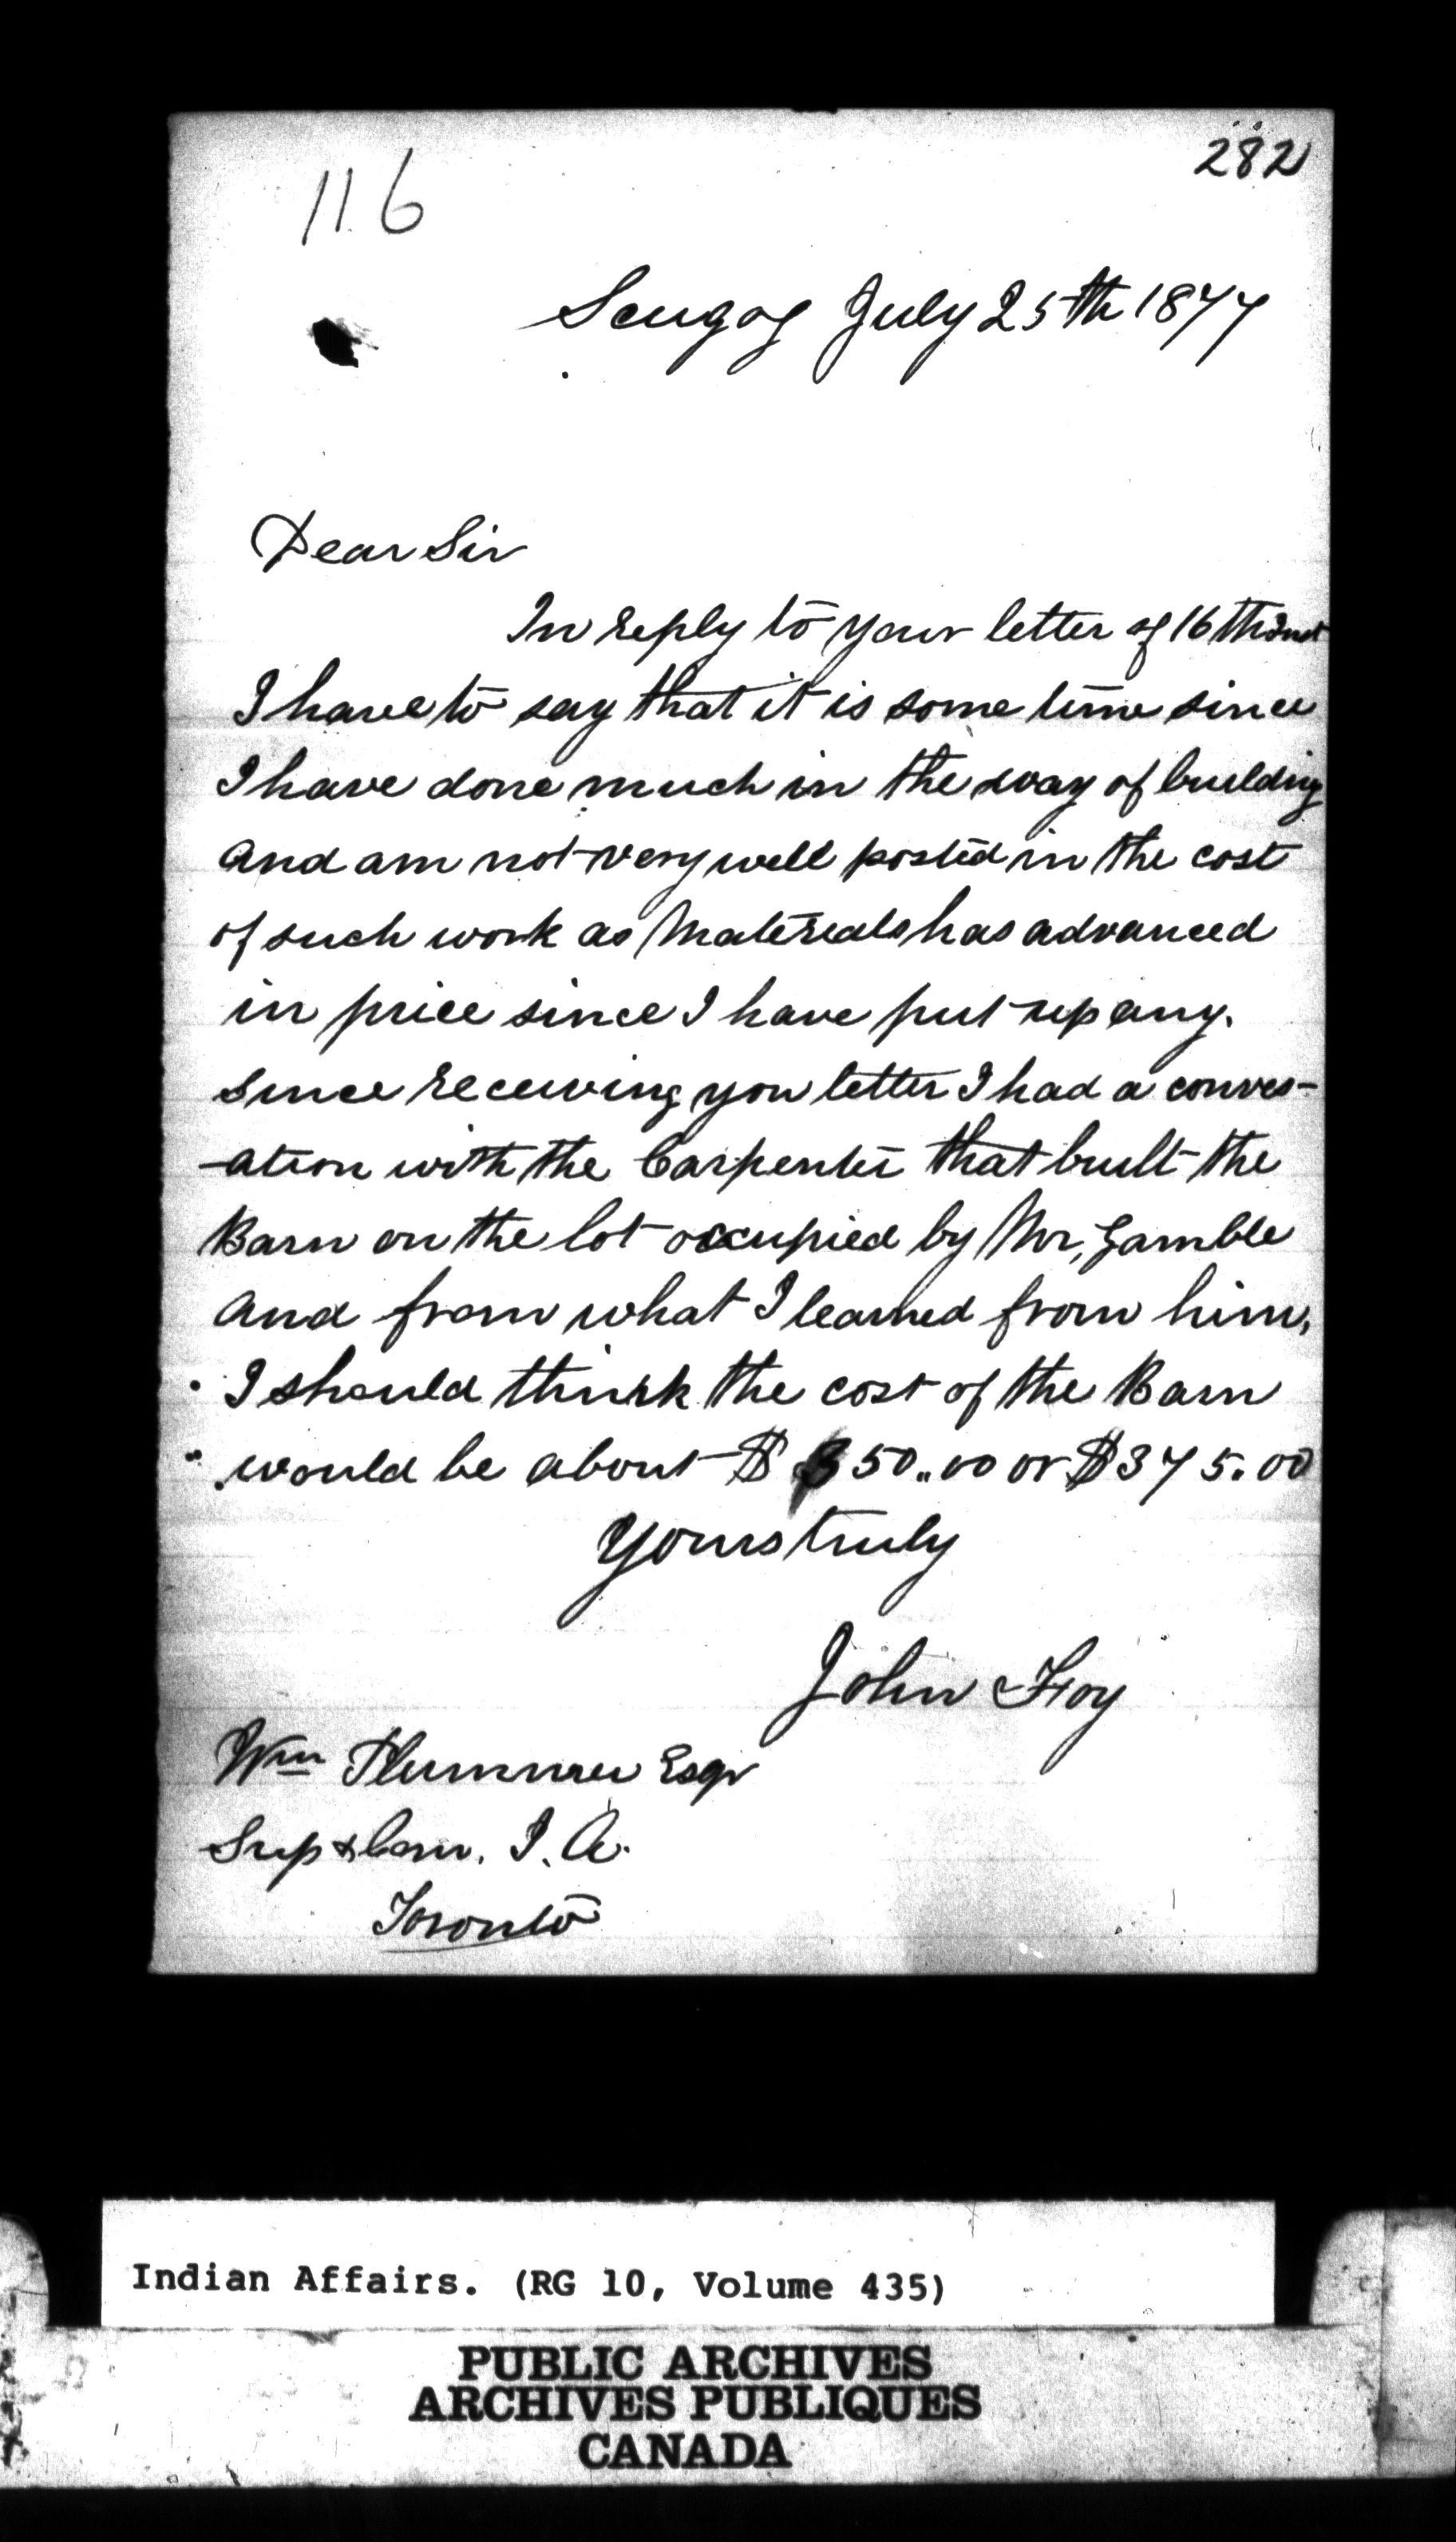 282
116
Scugog July 25th 1877
Dear Sir
In reply to your letter of 16th Inst
I have to say that it is some time since
I have done much in the way of building
and am not very well posted in the cost
of such work as Materials has advanced
in price since I have put up any.
Since receiving you letter I had a convers-
-ation with the Carpenter that built the
Barn on the lot occupied by Mr, Gamble
and from what I learned from him,
I should think the cost of the Barn
would be about $ 350..00 or $375.00
Yours truly
John Foy
Wm Plummer Esqr
Sup & Com. I. A.
Toronto
Indian Affairs. (RG 10, Volume 435)
PUBLIC ARCHIVES
ARCHIVES PUBLIQUES
CANADA